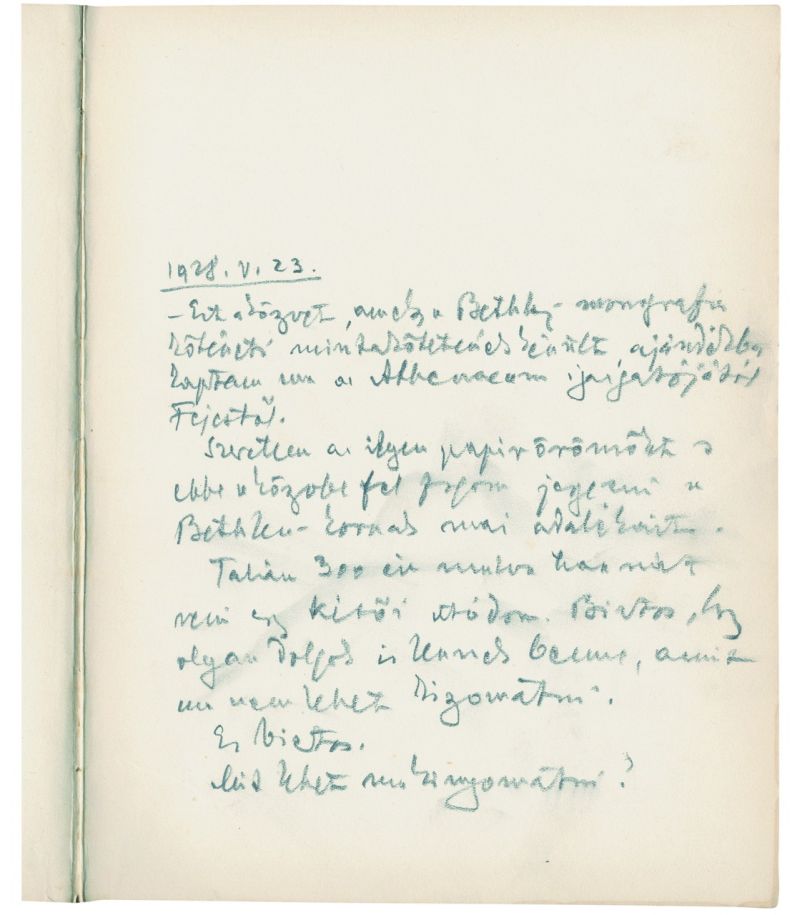 1928. V. 23.
– Ezt a könyvet, amely a Bethlen-monografia
kötéseti mintakötetének készült ajándékba
kaptam ma az Athenaeum igazgatójától
Fejestől.
Szeretem az ilyen papirörömöket s
ebbe a könyvbe fel fogom jegyezni a
Bethlen-kornak mai adalékait.
Talán 300 év mulva hasznát
veszi egy kései utódom. Biztos, hogy
olyan dolgok is lesznek benne, amit
ma nem lehet kinyomatni.
Ez biztos.
Mit lehet ma kinyomatni?